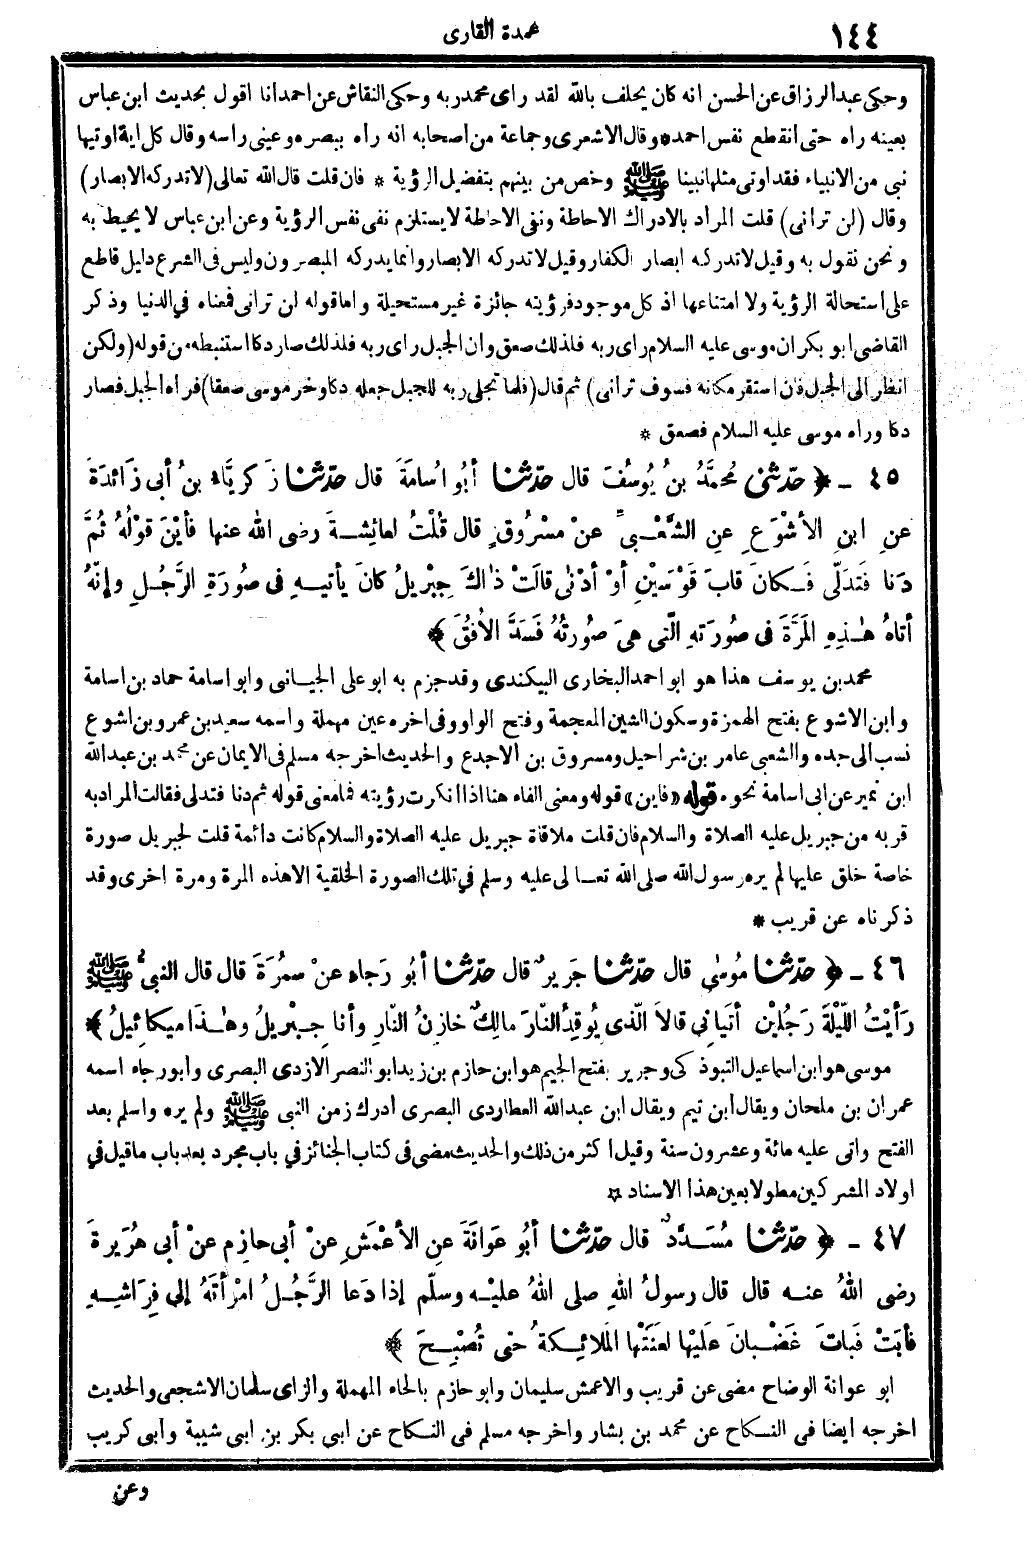 ١٤٤
عمدة القارى
وحكى عبدالرزاق عن الحسن انه كان يحلف بالله لقد راى محمدربه وحكى النقاش عن احمدانا اقول بحديث ابن عباس
بعينه راه حتى انقطع نفس احمد* وقال الاشعرى وجماعة من اصحابه انه راه ببصره وعينى راسه وقال كل اية اوتيها
نبى من الانبياء فقد اوتى مثلها نبينا ﷺ وخص من بينهم بتفضيل الرؤية * فان قلت قال الله تعالى (لاتدركه الابصار)
وقال (لن ترانى) قلت المراد بالادراك الاحاطة ونفى الاحاطة لايستلزم نفى نفس الرؤية وعن ابن عباس لا يحيط به
ونحن نقول به وقيل لاتدركه ابصار الكفار وقيل لاتدركه الابصار وانما يدركه المبصرون وليس فى الشرع دليل قاطع
على استحالة الرؤية ولا امتناعها اذ كل موجود فرؤيته جائزة غير مستحيلة واما قوله لن ترانى فمعناه فى الدنيا وذكر
القاضى ابو بكر ان موسى عليه السلام راى ربه فلذلك صعق وان الجبل راى ربه فلذلك صار دكا استنبطه من قوله (ولكن
انظر الى الجبل فان استقر مكانه فسوف ترانى) ثم قال (فلما تجلى ربه للجبل جعله دكا وخر موسى صعقا) فراه الجبل فصار
دكا وراه موسى عليه السلام فصعق *
٤٥ ـ ﴿ حدّثنى مُحمَّدُ بنُ يُوسُفَ قال حدّثنا أبُو اُسامَةَ قال حدّثنا زَكرِيَّاء بنُ أبى زَائدَةَ
عن ابنِ الأشْوَعِ عنِ الشَّعْبىِّ عنْ مسْرُوقٍ قال قُلْتُ لعائِشةَ رضى الله عنها فأيْنَ قوْلُهُ ثُمَّ
دَنا فَتدَلَّى فَكانَ قابَ قَوْسَيْنِ أوْ أدْنٰى قالَتْ ذٰاكَ جِبْريلُ كانَ يأتيهِ فى صُورَةِ الرَّجُلِ وإنَّهُ
أتاهُ هٰذِهِ المَرَّةَ فى صُورَتهِ الَّتى هىَ صُورتُهُ فَسَدَّ الأفُقَ ﴾
محمدبن يوسف هذا هو ابو احمد البخارى البيكندى وقدجزم به ابو على الجيانى وابو اسامة حماد بن اسامة
وابن الاشوع بفتح الهمزة وسكون الشين المعجمة وفتح الواو وفى اخره عين مهملة واسمه سعيد بن عمرو بن اشوع
نسب الى جده والشعبى عامر بن شراحيل ومسروق بن الاجدع والحديث اخرجه مسلم فى الايمان عن محمد بن عبدالله
ابن نمير عن ابى اسامة نحوه قوله «فاين» قوله ومعنى الفاء هنا اذا انكرت رؤيته فما معنى قوله ثم دنا فتدلى فقالت المراد به
قربه من جبريل عليه الصلاة والسلام فان قلت ملاقاة جبريل عليه الصلاة والسلام كانت دائمة قلت لجبريل صورة
خاصة خلق عليها لم يره رسول الله صلى الله تعالى عليه وسلم فى تلك الصورة الخلقية الا هذه المرة ومرة اخرى وقد
ذكرناه عن قريب *
٤٦ ـ ﴿ حدّثنا مُوسٰى قال حدّثنا جَريرٌ قال حدّثنا أبُو رَجاءٍ عنْ سمُرَةَ قال قال النبىُّ ﷺ
رَأيْتُ اللّيْلةَ رَجُليْنِ أتَيانِي قالاَ الّذى يُوقِدُ النّارَ مالِكٌ خازِنُ النّارِ وأنا جِبْريلُ وهٰذا ميكائِيلُ ﴾
موسى هو ابن اسماعيل التبوذكى وجرير بفتح الجيم هو ابن حازم بن زيد ابو النصر الازدى البصرى وابو رجاء اسمه
عمران بن ملحان ويقال ابن تيم ويقال ابن عبدالله العطاردى البصرى ادرك زمن النبى ﷺ ولم يره واسلم بعد
الفتح واتى عليه مائة وعشرون سنة وقيل اكثر من ذلك والحديث مضى فى كتاب الجنائز فى باب مجرد بعد باب ماقيل فى
اولاد المشركين مطولا بعين هذا الاسناد *
٤٧ ـ ﴿ حدّثنا مُسَدَّدٌ قال حدّثنا أبُو عَوانَةَ عنِ الأعْمَشِ عنْ أبى حازِمٍ عنْ أبى هُرَيرةَ
رضى اللهُ عنه قال قال رسولُ اللهِ صلى اللهُ عليْه وسلّم إذا دَعا الرَّجُلُ امْرأتَهُ إلى فِرَاشِهِ
فأبَتْ فَباتَ غَضْبانَ عَلَيْها لعَنَتْها المَلائِكةُ حتى تُصْبِحَ ﴾
ابو عوانة الوضاح مضى عن قريب والاعمش سليمان وابو حازم بالحاء المهملة والزاى سلمان الاشجعى والحديث
اخرجه ايضا فى النكاح عن محمد بن بشار واخرجه مسلم فى النكاح عن ابى بكر بن ابى شيبة وابى كريب
وعن